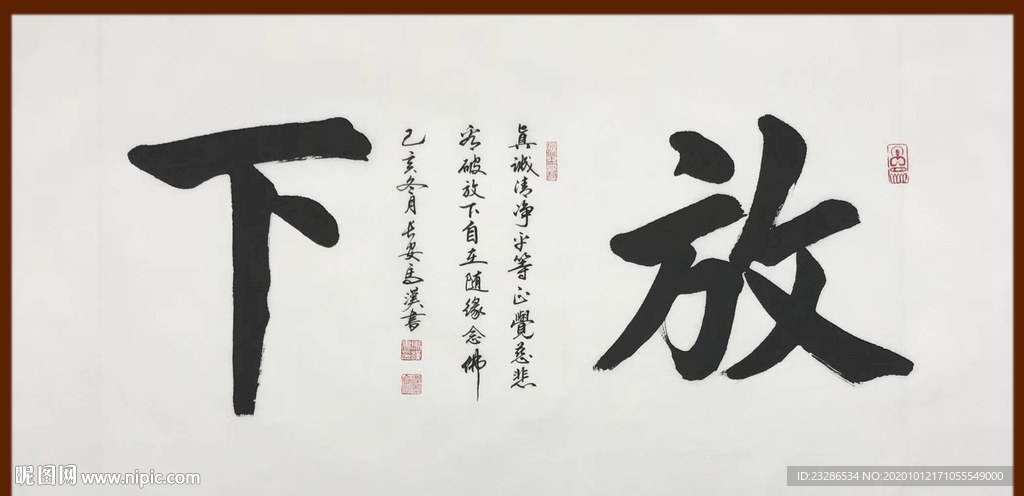 放下
真诚清净平等正覺慈悲
看破放下自在随缘念佛
己亥冬月长安馬漢書
昵图网 www.nipic.com
ID:23286534 NO:20201012171055549000